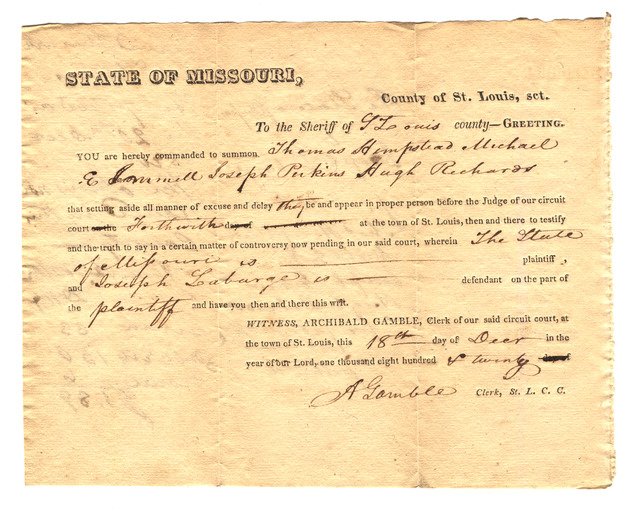 STATE OF MISSOURI,
County of St. Louis, sct.
To the Sheriff of St Louis county—GREETING.
YOU are hereby commanded to summon Thomas Hempstead Michael
E Immell Joseph Perkins Hugh Richards
that setting aside all manner of excuse and delay they be and appear in proper person before the Judge of our circuit
court on the Forthwith day of at the town of St. Louis, then and there to testify
and the truth to say in a certain matter of controversy now pending in our said court, wherein The State
of Missouri is plaintiff,
and Joseph Labarge is defendant on the part of
the plaintiff and have you then and there this writ.
WITNESS, ARCHIBALD GAMBLE, Clerk of our said circuit court, at
the town of St. Louis, this 18th day of Decr in the
year of our Lord, one thousand eight hundred & twenty day of
A Gamble Clerk, St. L. C. C.